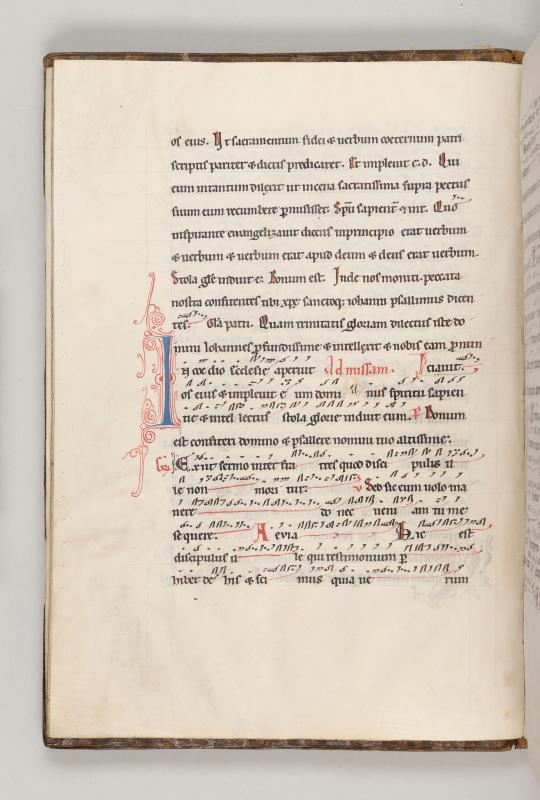 os eius. Ut sacramentum fidei & verbum coeternum patri
scriptis pariter & dictis predicaret. Et impleuit e. d. Qui
eum in tantum dilexit ut in cena sacratissima supra pectus
suum eum recumbere pmisisset. Spu sapient & int. Quo
inspirante euuangelizauit dicens in principio erat uerbum
& uerbum & uerbum erat apud deum & deus erat uerbum.
Stola gle induit e. Bonum est. Inde nos moniti peccata
nostra confitentes tibi xpe sanctoq; iohanni psallimus dicen
tes. Gla patri. Quam trinitatis gloriam dilectus iste do
mini Iohannes pfundissime & intellexit & nobis eam p
In medio ecclesie aperuit Ad missam. Iciauit.
os eius & impleuit e um domi nus spiritu sapien
tie & intel lectus stola glorie induit eum. Bonum
est confiteri domino & psallere nomini tuo altissime.
Exiit sermo inter fra tres quod disci pulus il
le non mori tur. Sed sic eum uolo ma
nere do nec ueni am tu me
sequere. A euia Hic est
discipulus il le qui testimonium p
hibet de his & sci mus quia ue rum